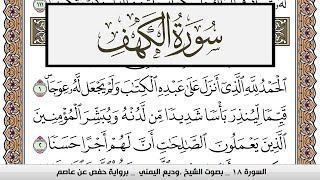 سُورَةُ الكَهْفِ
ٱلْحَمْدُ لِلَّهِ ٱلَّذِىٓ أَنزَلَ عَلَىٰ عَبْدِهِ ٱلْكِتَٰبَ وَلَمْ يَجْعَل لَّهُۥ عِوَجَاۜ ١
قَيِّمًا لِّيُنذِرَ بَأْسًا شَدِيدًا مِّن لَّدُنْهُ وَيُبَشِّرَ ٱلْمُؤْمِنِينَ
ٱلَّذِينَ يَعْمَلُونَ ٱلصَّٰلِحَٰتِ أَنَّ لَهُمْ أَجْرًا حَسَنًا ٢
السورة ١٨ _ بصوت الشيخ .وديع اليمني _ برواية حفص عن عاصم